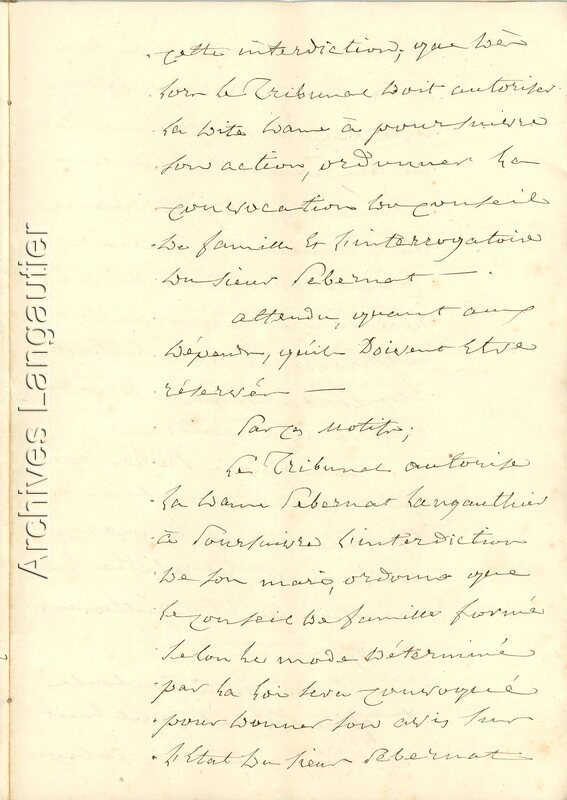 cette interdiction; que dès
lors le Tribunal doit autoriser
la dite dame à poursuivre
son action, ordonner la
convocation du conseil
de famille et l'interrogatoire
du sieur Pebernat —
attendu, quant aux
dépens, qu'ils doivent être
réservés —
Par ces Motifs;
Le Tribunal autorise
la dame Pebernat Langauthier
à Poursuivre l'interdiction
de son mari, ordonne que
le conseil de famille formé
selon le mode déterminé
par la loi sera convoqué
pour donner son avis sur
l'Etat du sieur Pebernat
Archives Langautier